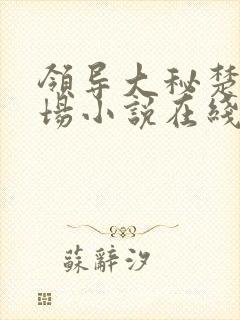 領导大秘楚
場小説在綫
蘇辭汐